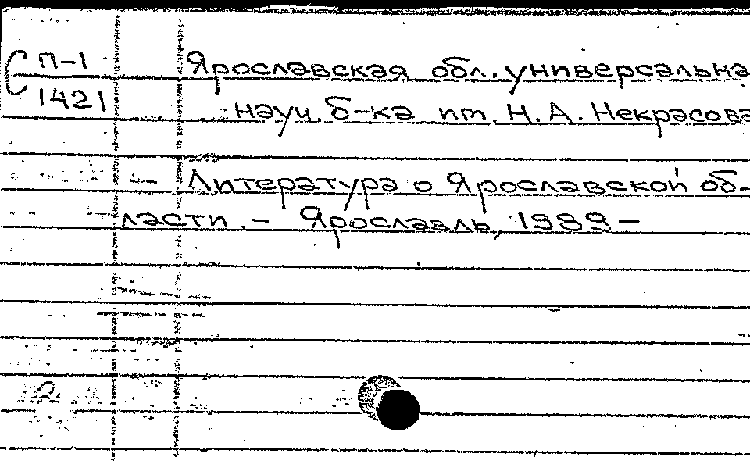 С П-1
1421
Ярославская обл. универсальна
науч. б-ка им. Н. А. Некрасова
Литература о Ярославской об-
ласти. – Ярославль, 1989 –